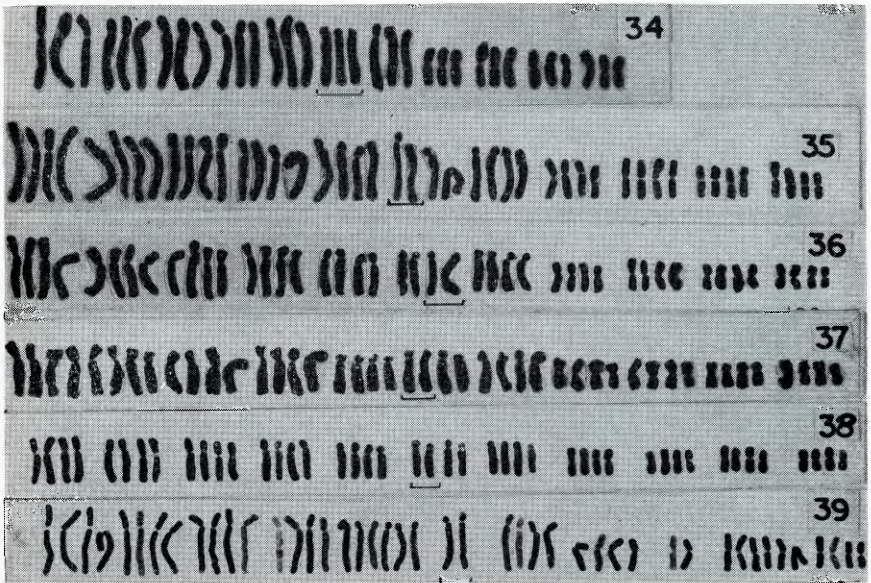 34
35
36
37
38
39